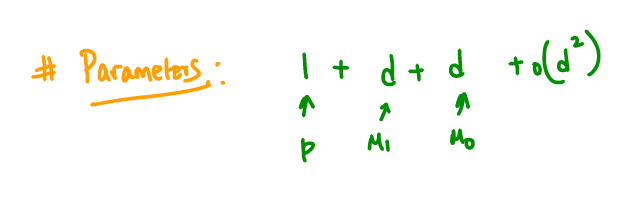 # Parameters: 1 + d + d + o(d²)
↑ ↑ ↑
p μ₁ μ₀